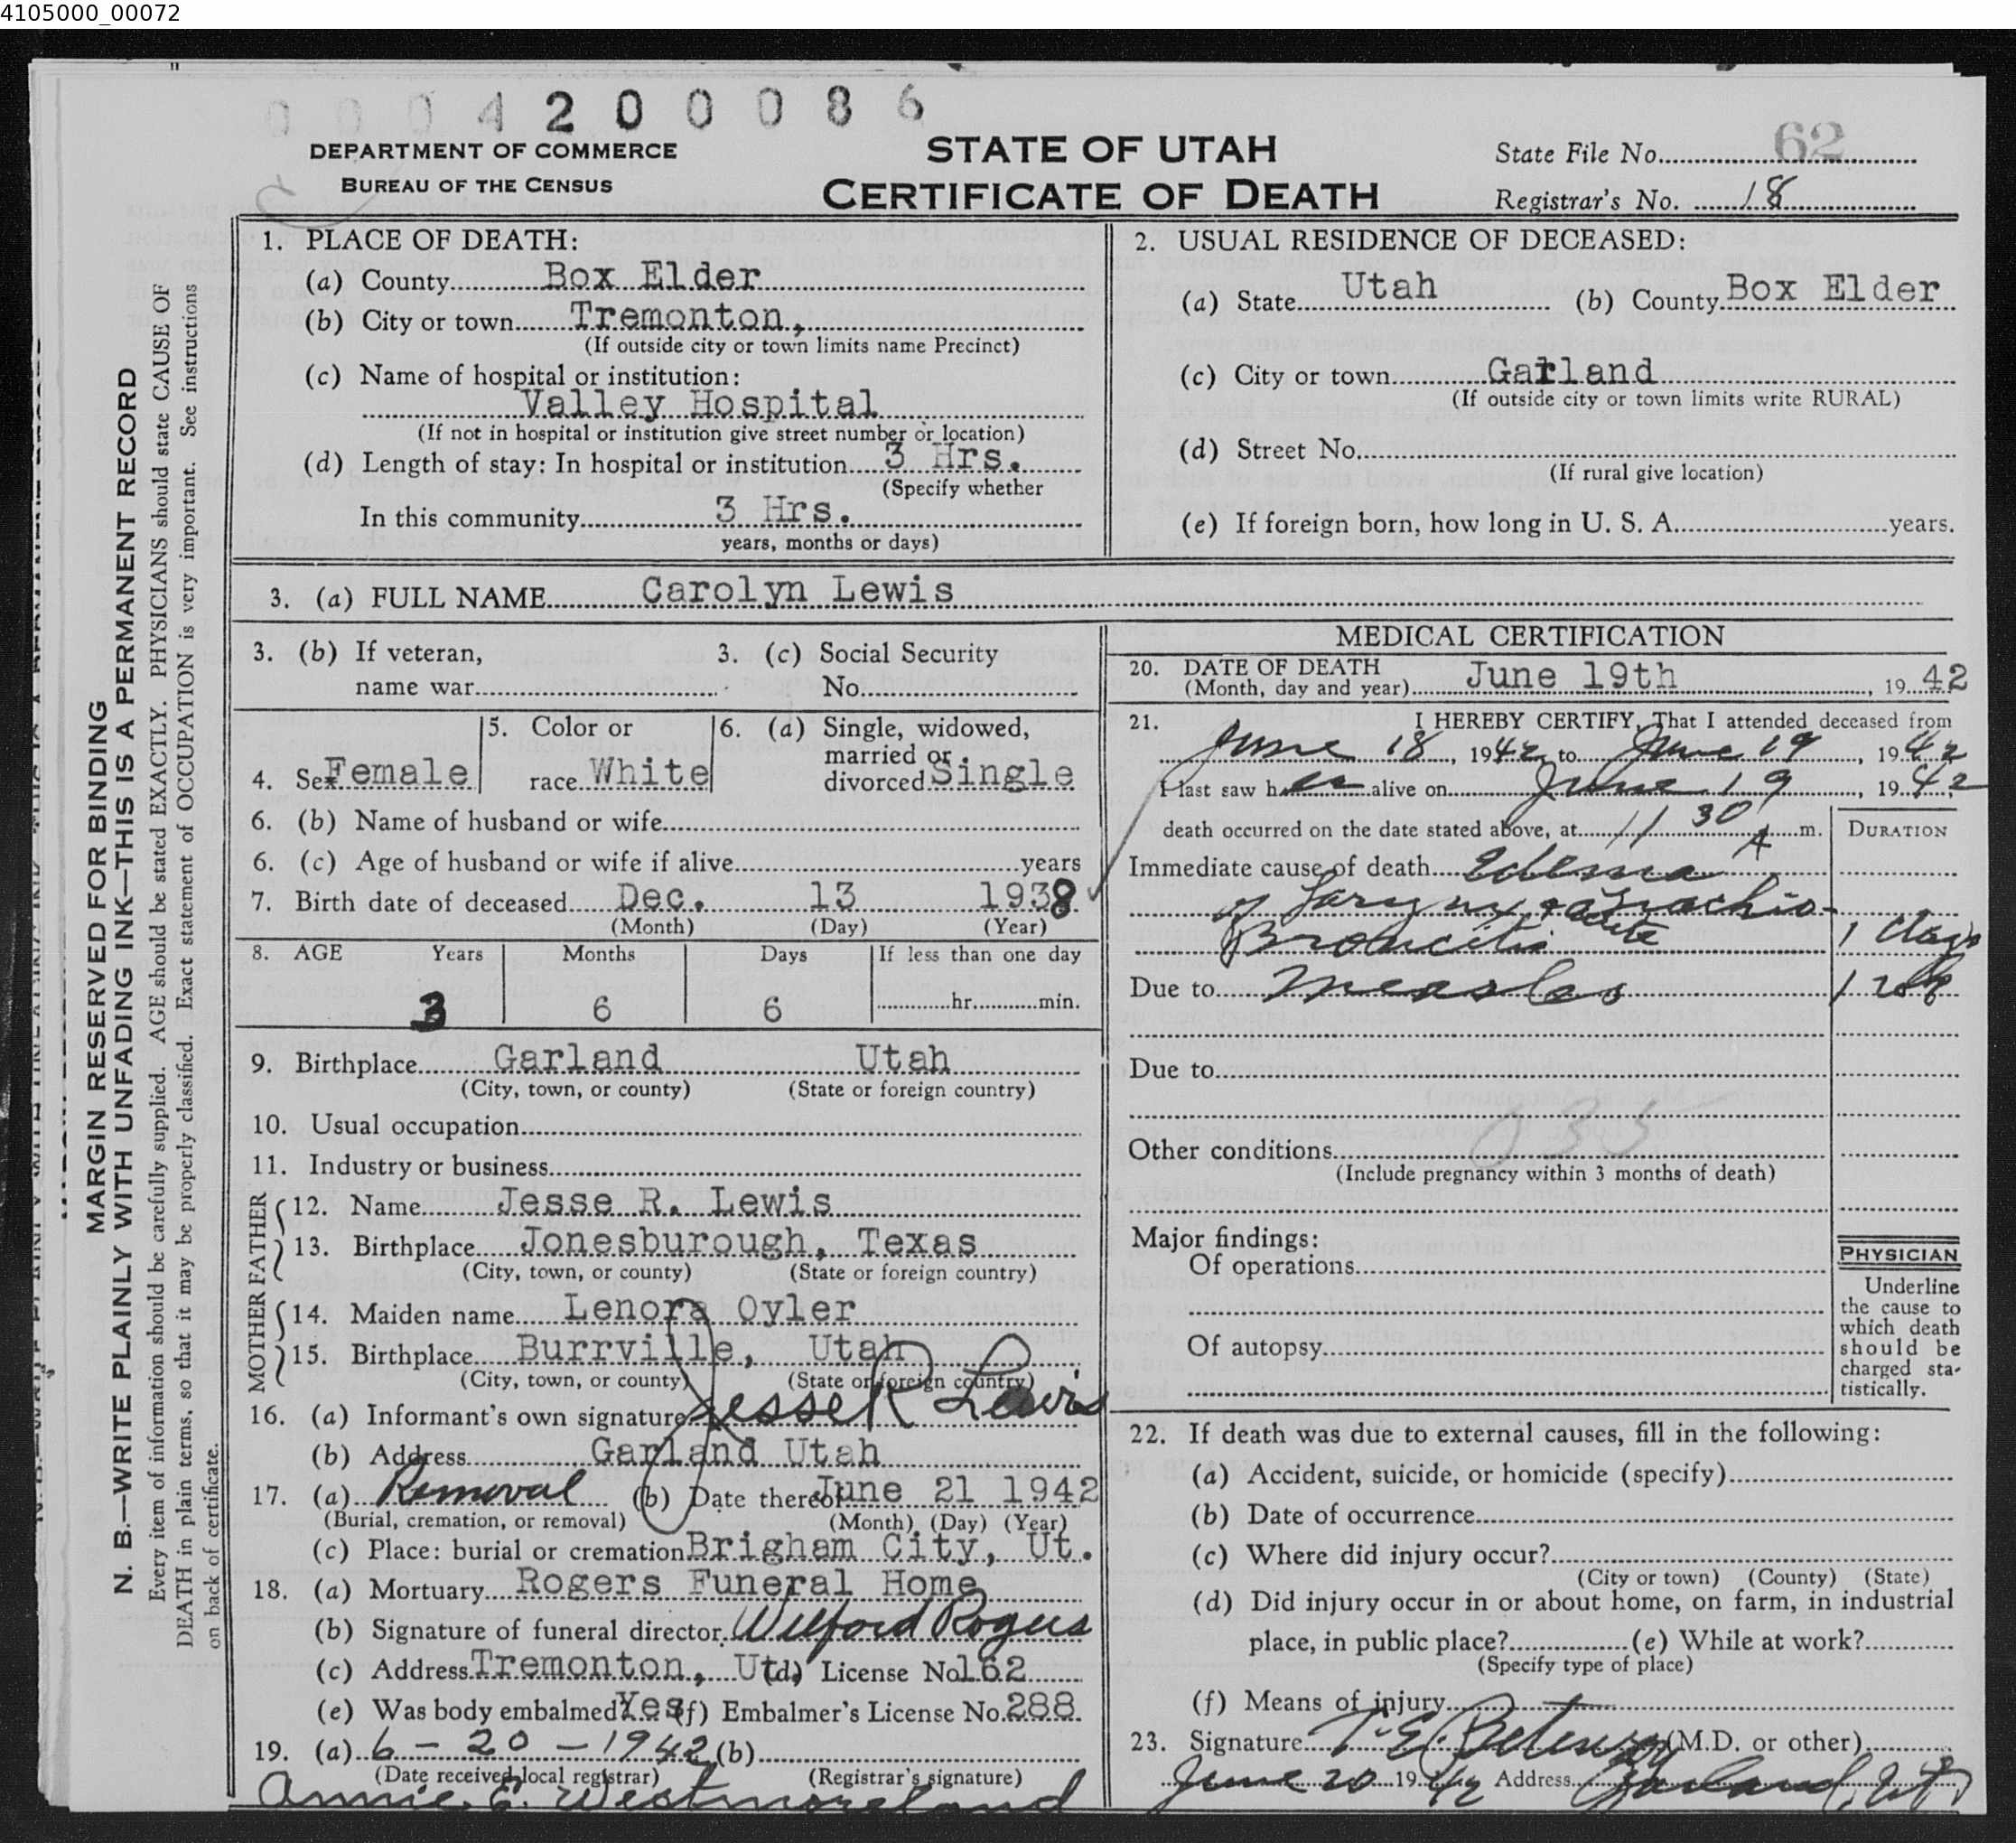 4105000_00072
0 0 0 4 2 0 0 0 8 6
DEPARTMENT OF COMMERCE
BUREAU OF THE CENSUS
STATE OF UTAH
CERTIFICATE OF DEATH
State File No. 62
Registrar's No. 18
MARGIN RESERVED FOR BINDING
N. B.—WRITE PLAINLY WITH UNFADING INK—THIS IS A PERMANENT RECORD
Every item of information should be carefully supplied. AGE should be stated EXACTLY. PHYSICIANS should state CAUSE OF
DEATH in plain terms, so that it may be properly classified. Exact statement of OCCUPATION is very important. See instructions
on back of certificate.
1. PLACE OF DEATH:
(a) County Box Elder
(b) City or town Tremonton,
(If outside city or town limits name Precinct)
(c) Name of hospital or institution:
Valley Hospital
(If not in hospital or institution give street number or location)
(d) Length of stay: In hospital or institution 3 Hrs.
(Specify whether
In this community 3 Hrs.
years, months or days)
2. USUAL RESIDENCE OF DECEASED:
(a) State Utah (b) County Box Elder
(c) City or town Garland
(If outside city or town limits write RURAL)
(d) Street No.
(If rural give location)
(e) If foreign born, how long in U. S. A. years.
3. (a) FULL NAME Carolyn Lewis
3. (b) If veteran, name war
3. (c) Social Security No.
4. Sex Female
5. Color or race White
6. (a) Single, widowed, married or divorced Single
6. (b) Name of husband or wife
6. (c) Age of husband or wife if alive years
7. Birth date of deceased Dec. 13 1938
(Month) (Day) (Year)
8. AGE Years Months Days If less than one day
3 6 6 hr. min.
9. Birthplace Garland Utah
(City, town, or county) (State or foreign country)
10. Usual occupation
11. Industry or business
FATHER
12. Name Jesse R. Lewis
13. Birthplace Jonesburough, Texas
(City, town, or county) (State or foreign country)
MOTHER
14. Maiden name Lenora Oyler
15. Birthplace Burrville, Utah
(City, town, or county) (State or foreign country)
16. (a) Informant's own signature Jesse R Lewis
(b) Address Garland Utah
17. (a) Removal (b) Date thereof June 21 1942
(Burial, cremation, or removal) (Month) (Day) (Year)
(c) Place: burial or cremation Brigham City, Ut.
18. (a) Mortuary Rogers Funeral Home
(b) Signature of funeral director Wilford Rogers
(c) Address Tremonton, Ut (d) License No. 162
(e) Was body embalmed Yes (f) Embalmer's License No. 288
19. (a) 6 - 20 - 1942 (b)
(Date received local registrar) (Registrar's signature)
Annie E. Westmoreland
MEDICAL CERTIFICATION
20. DATE OF DEATH
(Month, day and year) June 19th, 1942
21. I HEREBY CERTIFY, That I attended deceased from
June 18, 1942, to June 19, 1942
I last saw her alive on June 19, 1942
death occurred on the date stated above, at 11 30 A m.
DURATION
Immediate cause of death Edema
of Larynx & Trachio-
Broncitis 1 day
Due to Measles 1 wk
Due to
035
Other conditions
(Include pregnancy within 3 months of death)
Major findings:
Of operations
Of autopsy
PHYSICIAN
Underline
the cause to
which death
should be
charged sta-
tistically.
22. If death was due to external causes, fill in the following:
(a) Accident, suicide, or homicide (specify)
(b) Date of occurrence
(c) Where did injury occur?
(City or town) (County) (State)
(d) Did injury occur in or about home, on farm, in industrial
place, in public place? (e) While at work?
(Specify type of place)
(f) Means of injury
23. Signature (M.D. or other)
June 20 1942 Address Garland, Ut